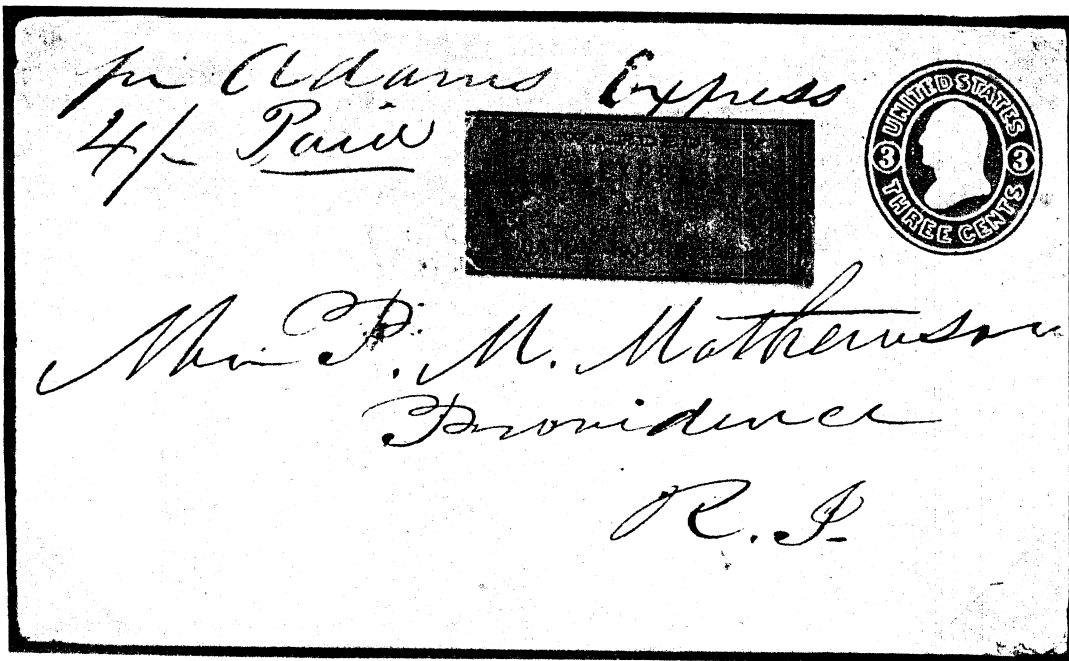 pr Adams Express
4/- Paid
UNITED STATES
3 3
THREE CENTS
P. M. Mathewson
Providence
R. I.